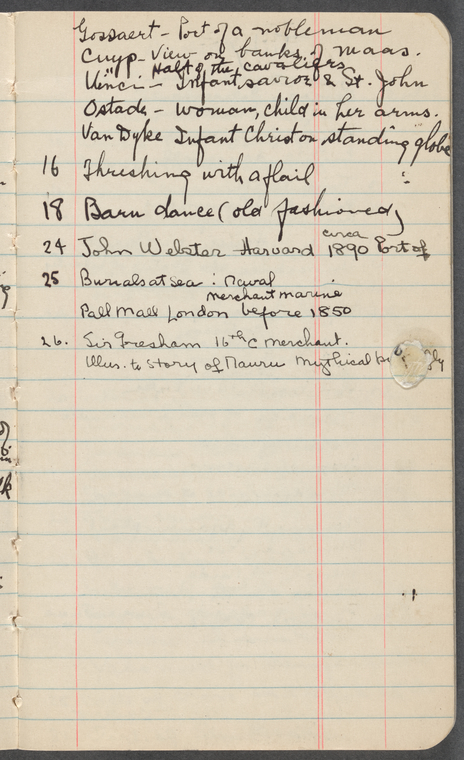 Gossaert - Port of a nobleman
Cuyp - View on banks of Maas.
" Halt of the cavaliers
Vinci - Infant, savior & St. John
Ostade - woman, child in her arms.
Van Dyke Infant Christ on standing globe
16 Threshing with a flail
18 Barn dance (old fashioned)
24 John Webster Harvard circa 1890 Port of
25 Burials at sea : Naval
merchant marine
Pall Mall London before 1850
26. Sir Gresham 16th C merchant.
Illus. to Story of Mythical